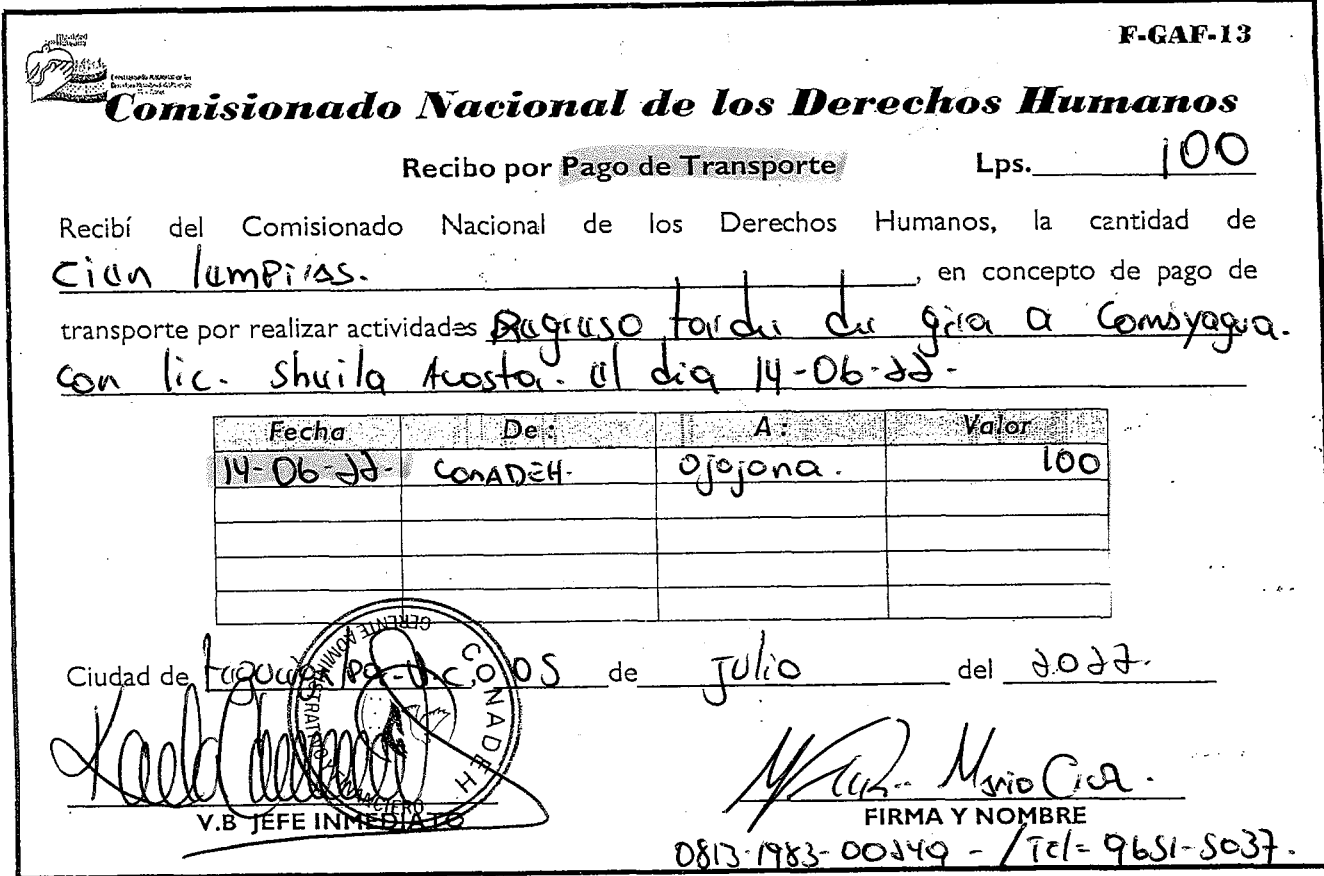 F-GAF-13
Comisionado Nacional de los Derechos Humanos
Recibo por Pago de Transporte Lps. 100
Recibí del Comisionado Nacional de los Derechos Humanos, la cantidad de
Cien lempiras. , en concepto de pago de
transporte por realizar actividades Regreso tarde de gira a Comayagua.
con lic. Sheila Acosta. el dia 14-06-22-
Fecha De: A: Valor
14-06-22- CONADEH- Ojojona. 100
Ciudad de 05 de Julio del 2022.
CONADEH
GERENTE ADMINISTRATIVO Y FINANCIERO
Mario
V.B JEFE INMEDIATO FIRMA Y NOMBRE
0813-1983-00249 - / Tel= 9651-5037.